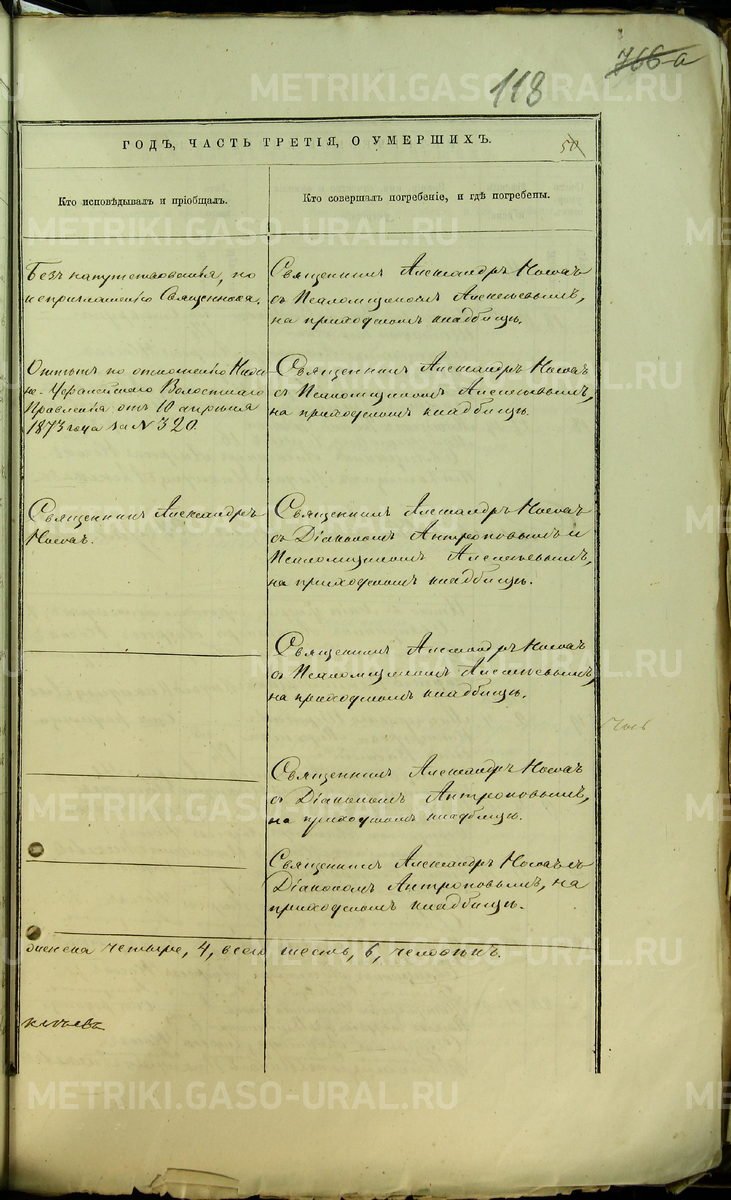 118
766а
ГОДЪ, ЧАСТЬ ТРЕТІЯ, О УМЕРШИХЪ.
50
Кто исповѣдывалъ и пріобщалъ.
Кто совершалъ погребеніе, и гдѣ погребены.
Безъ напутствованія, по
неприглашенію Священника.
Священникъ Александръ
съ Псаломщикомъ Алексѣевымъ,
на приходскомъ кладбищѣ.
Отпѣтъ по отношенію
Уфалейскаго Волостнаго
Правленія отъ 10 апрѣля
1873 года за № 320
Священникъ Александръ
съ Псаломщикомъ Алексѣевымъ,
на приходскомъ кладбищѣ.
Священникъ Александръ
Священникъ Александръ
съ Діакономъ Антроповымъ и
Псаломщикомъ Алексѣевымъ,
на приходскомъ кладбищѣ.
Священникъ Александръ
съ Псаломщикомъ Алексѣевымъ,
на приходскомъ кладбищѣ.
Священникъ Александръ
съ Діакономъ Антроповымъ,
на приходскомъ кладбищѣ.
Священникъ Александръ съ
Діакономъ Антроповымъ, на
приходскомъ кладбищѣ.
четыре, 4, всего шесть, 6, человѣкъ.
METRIKI.GASO-URAL.RU